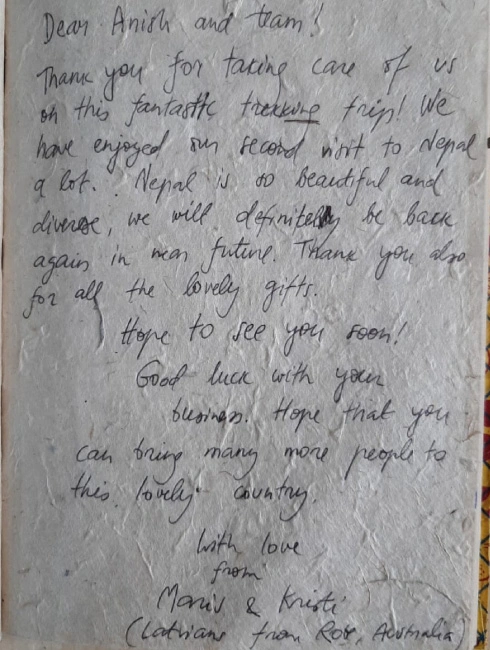 Dear Anish and team!
Thank you for taking care of us
on this fantastic trekking trip! We
have enjoyed our second visit to Nepal
a lot. Nepal is so beautiful and
diverse, we will definitely be back
again in near future. Thank you also
for all the lovely gifts.
Hope to see you soon!
Good luck with your
business. Hope that you
can bring many more people to
this lovely country.
With love
from
Maris & Kristi
(Latvians from Australia)